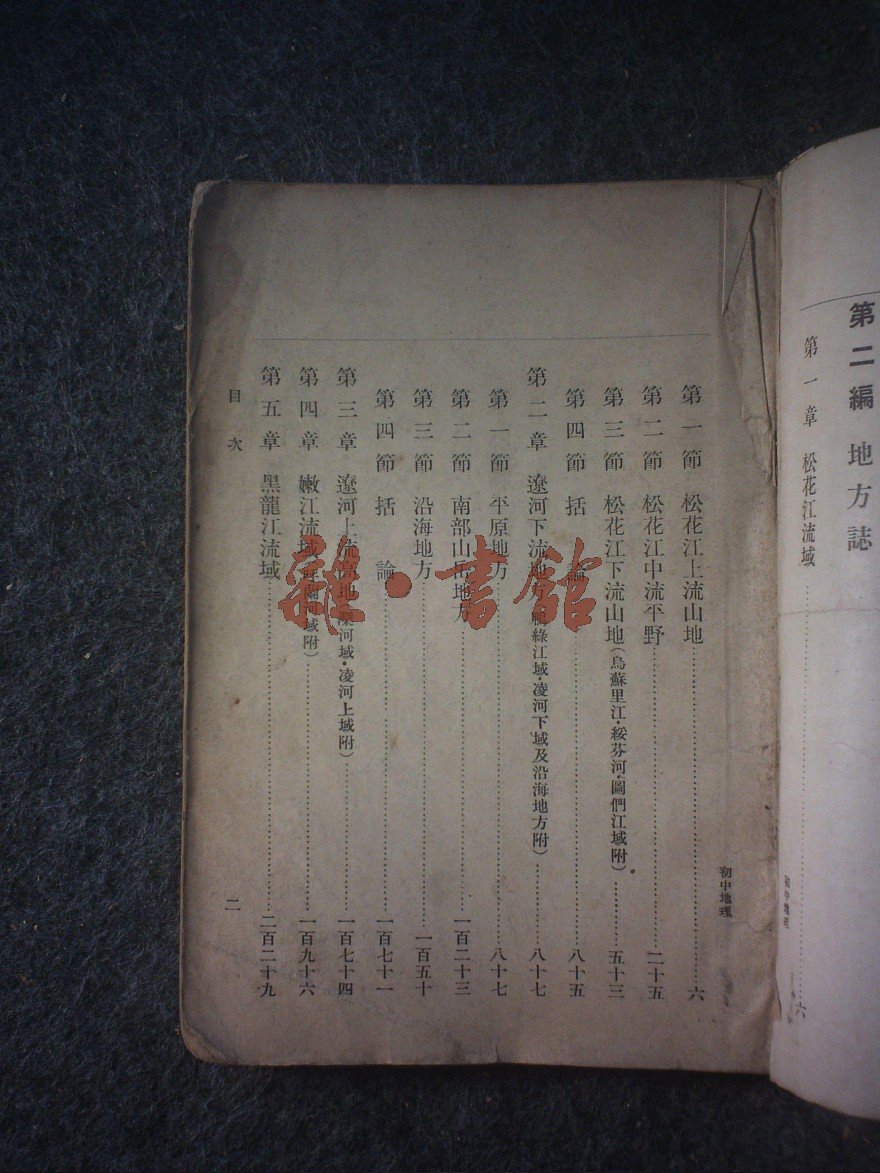 第二編 地方誌
第一章 松花江流域……六
初中地理
初中地理
第一節 松花江上流山地……六
第二節 松花江中流平野……二十五
第三節 松花江下流山地(烏蘇里江·綏芬河·圖們江域附)……五十三
第四節 括論……八十五
第二章 遼河下流地方(鴨綠江域·凌河下域及沿海地方附)……八十七
第一節 平原地方……八十七
第二節 南部山岳地方……一百二十三
第三節 沿海地方……一百五十
第四節 括論……一百七十一
第三章 遼河上流高地(灤河域·凌河上域附)……一百七十四
第四章 嫩江流域(呼蘭河域附)……一百九十六
第五章 黑龍江流域……二百二十九
目次
二
雜·書館